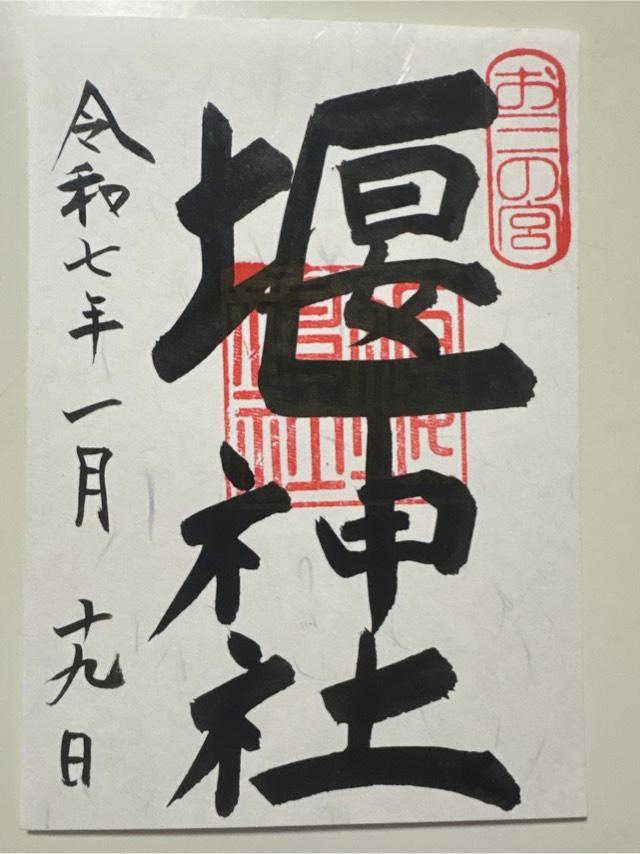 お三の宮
堰神社
令和七年一月十九日